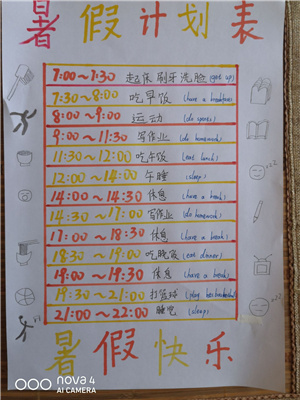 暑假计划表
7:00～7:30 起床 刷牙 洗脸 (get up)
7:30～8:00 吃早饭 (have a breakfast)
8:00～9:00 运动 (do sports)
9:00～11:30 写作业 (do homework)
11:30～12:00 吃午饭 (eat lunch)
12:00～14:00 午睡 (sleep)
14:00～14:30 休息 (have a break)
14:30～17:00 写作业 (do homework)
17:00～18:30 休息 (have a break)
18:30～19:00 吃晚饭 (eat dinner)
19:00～19:30 休息 (have a break)
19:30～21:00 打篮球 (play basketball)
21:00～22:00 睡觉 (sleep)
暑假快乐
nova 4
AI CAMERA